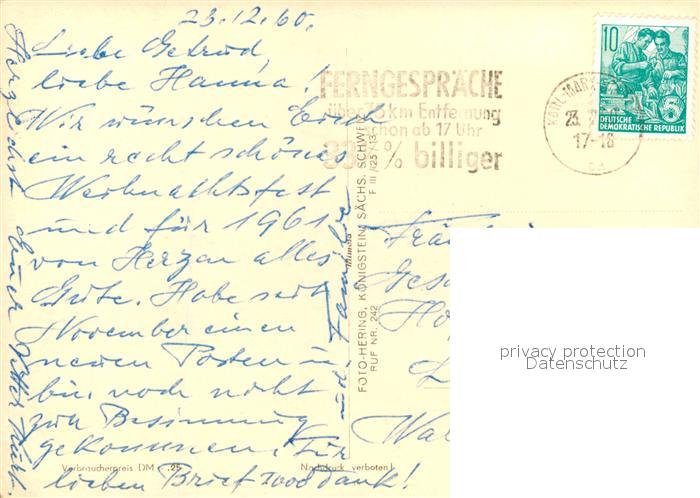 23.12.60.
Liebe Getrud,
liebe Hanna!
Wir wünschen Euch
ein recht schönes
Weihnachtsfest
und für 1961
von Herzen alles
Gute. Habe seit
November einen
neuen Posten u.
bin noch nicht
zur Besinnung
gekommen. Für
lieben Brief 1000 Dank!
Herzlichst Euch
und Familie
FERNGESPRÄCHE
über 75 km Entfernung
schon ab 17 Uhr
33 % billiger
KARL-MARX-
23.
17-18
10
5
DEUTSCHE
DEMOKRATISCHE REPUBLIK
FOTO-HERING, KÖNIGSTEIN/SÄCHS. SCHWEIZ
RUF NR. 242
F III/25/13
Verbraucherpreis DM -.25
Nachdruck verboten!
privacy protection
Datenschutz